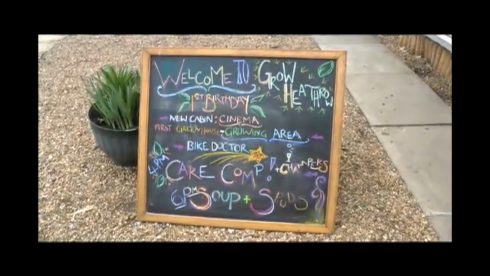 WELCOME TO GROW HEATHROW
1ST BIRTHDAY
NEW CABIN: CINEMA
FIRST GREENHOUSE - GROWING AREA
BIKE DOCTOR
4PM CAKE COMP!
6PM SOUP + SPUDS